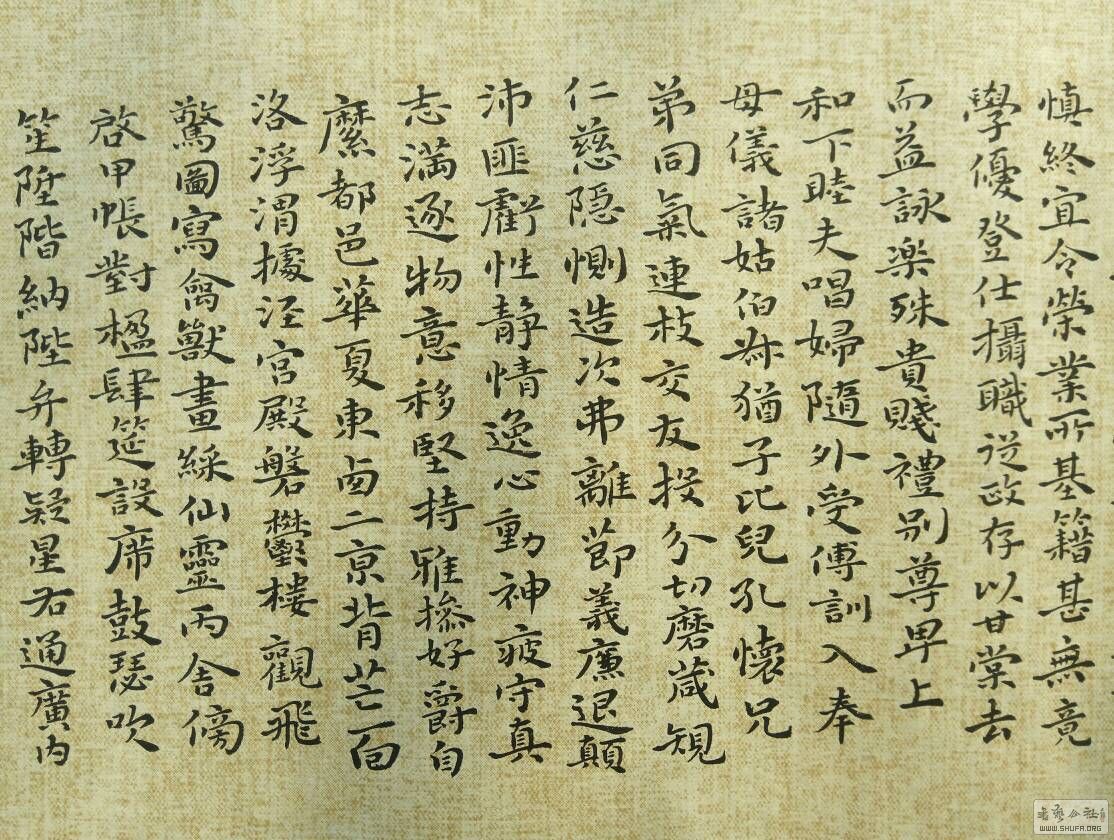 慎終宜令榮業所基籍甚無竟
學優登仕攝職從政存以甘棠去
而益詠楽殊貴賤禮別尊卑上
和下睦夫唱婦隨外受傅訓入奉
母儀諸姑伯叔猶子比兒孔懷兄
弟同氣連枝交友投分切磨葴規
仁慈隠惻造次弗離節義廉退顛
沛匪虧性静情逸心動神疲守真
志満逐物意移堅持雅操好爵自
縻都邑華夏東西二京背芒面
洛浮渭據涇宮殿磐欝樓觀飛
驚圖寫禽獸畫綵仙靈丙舍傍
啓甲帳對楹肆筵設席鼓瑟吹
笙陞階納陛弁轉疑星右通廣内
WWW.SHUFA.ORG